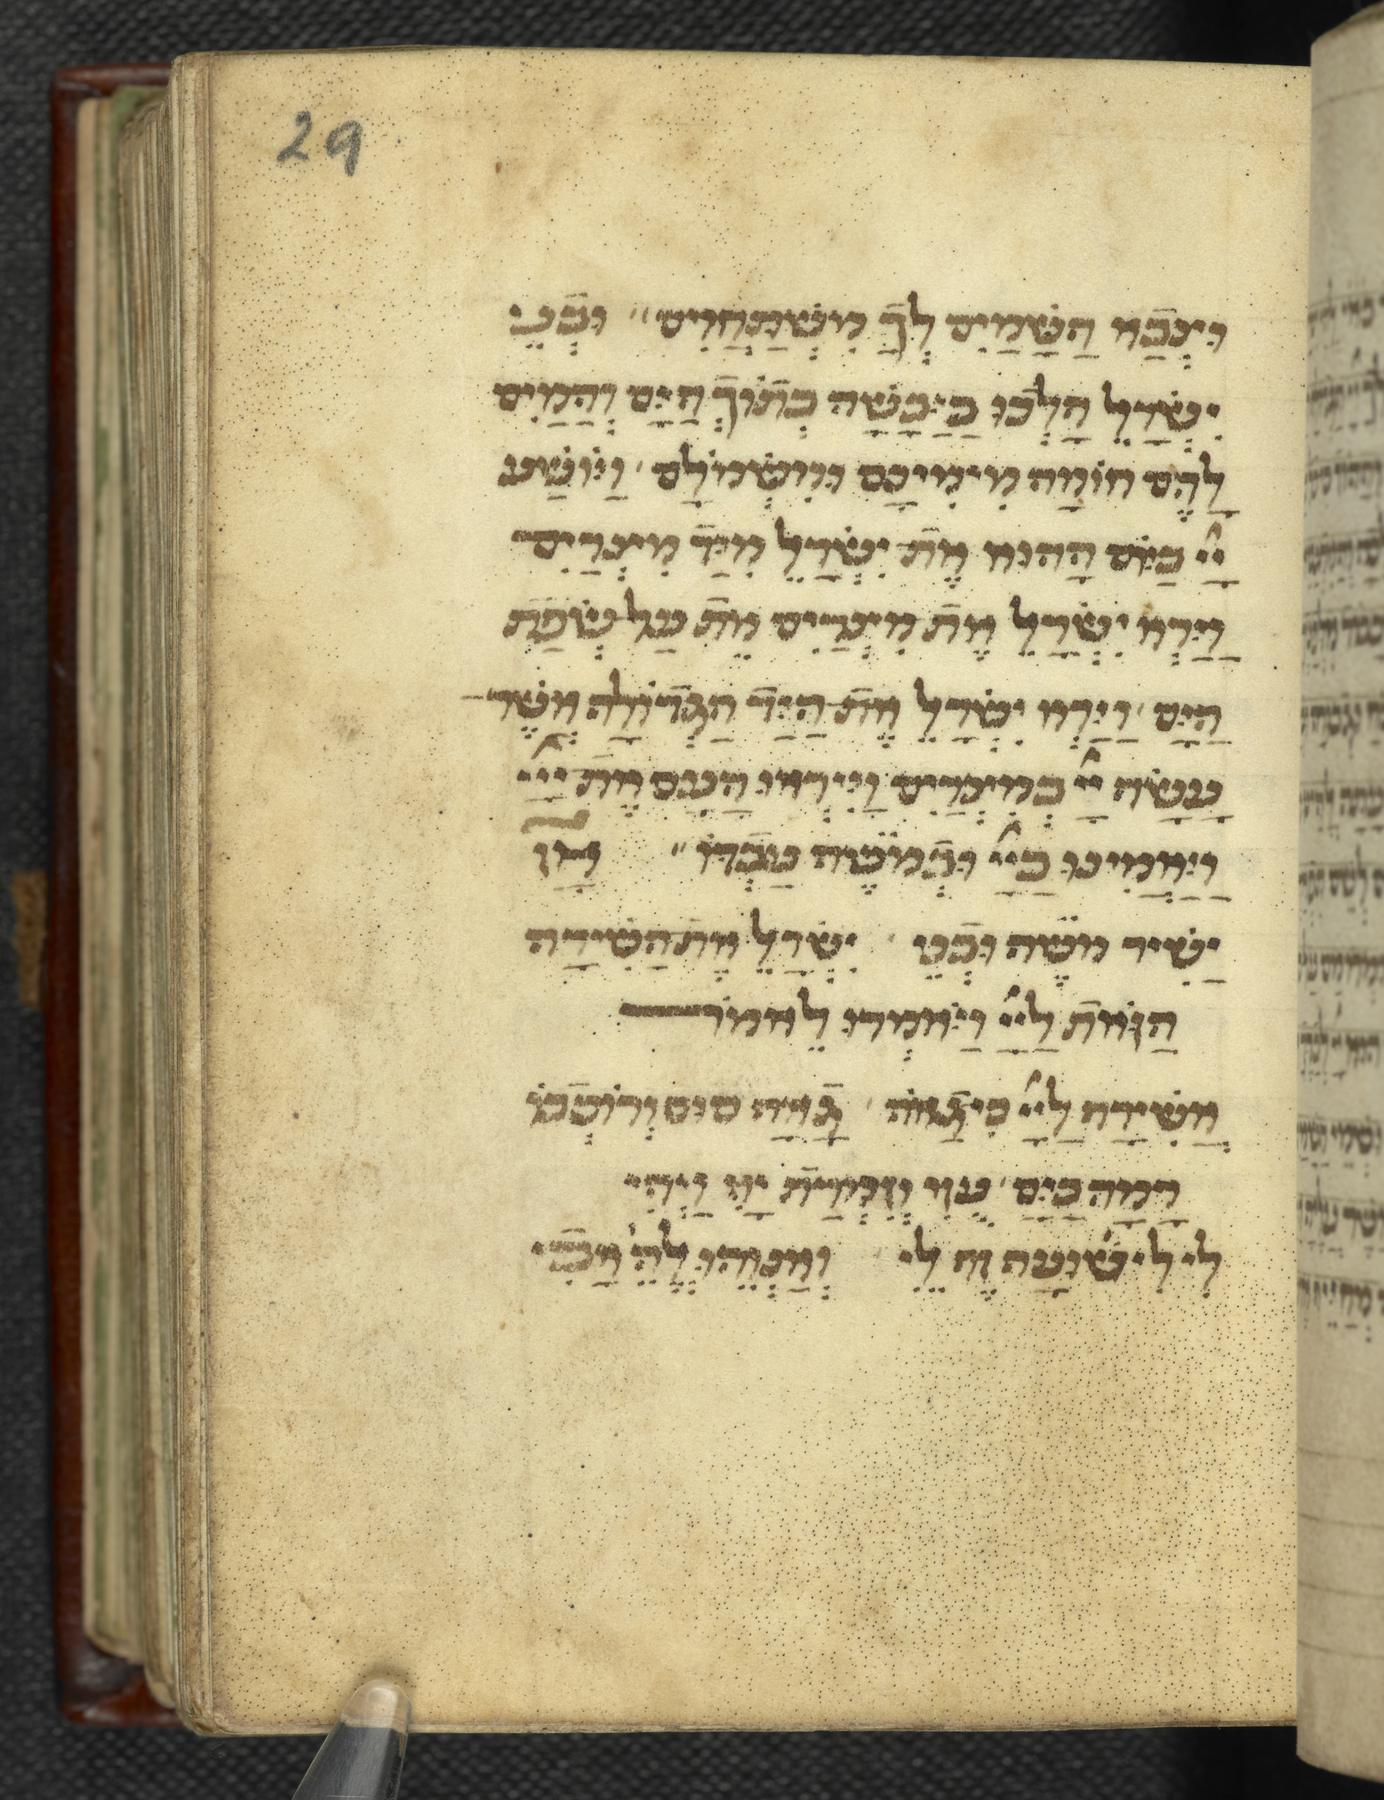 29
וּצְבָא הַשָּׁמַיִם לְךָ מִשְׁתַּחֲוִים׃ וּבְנֵי
יִשְׂרָאֵל הָלְכוּ בַיַּבָּשָׁה בְּתוֹךְ הַיָּם וְהַמַּיִם
לָהֶם חוֹמָה מִימִינָם וּמִשְּׂמֹאלָם׃ וַיּוֹשַׁע
יְיָ בַּיּוֹם הַהוּא אֶת יִשְׂרָאֵל מִיַּד מִצְרַיִם
וַיַּרְא יִשְׂרָאֵל אֶת מִצְרַיִם מֵת עַל שְׂפַת
הַיָּם׃ וַיַּרְא יִשְׂרָאֵל אֶת הַיָּד הַגְּדוֹלָה אֲשֶׁר
עָשָׂה יְיָ בְּמִצְרַיִם וַיִּירְאוּ הָעָם אֶת יְיָ
וַיַּאֲמִינוּ בַּייָ וּבְמֹשֶׁה עַבְדּוֹ׃ אָז
יָשִׁיר מֹשֶׁה וּבְנֵי יִשְׂרָאֵל אֶת הַשִּׁירָה
הַזֹּאת לַייָ וַיֹּאמְרוּ לֵאמוֹר
אָשִׁירָה לַייָ כִּי גָאֹה גָּאָה סוּס וְרוֹכְבוֹ
רָמָה בַיָּם׃ עָזִּי וְזִמְרָת יָהּ וַיְהִי
לִי לִישׁוּעָה זֶה אֵלִי וְאַנְוֵהוּ אֱלֹהֵי אָבִי